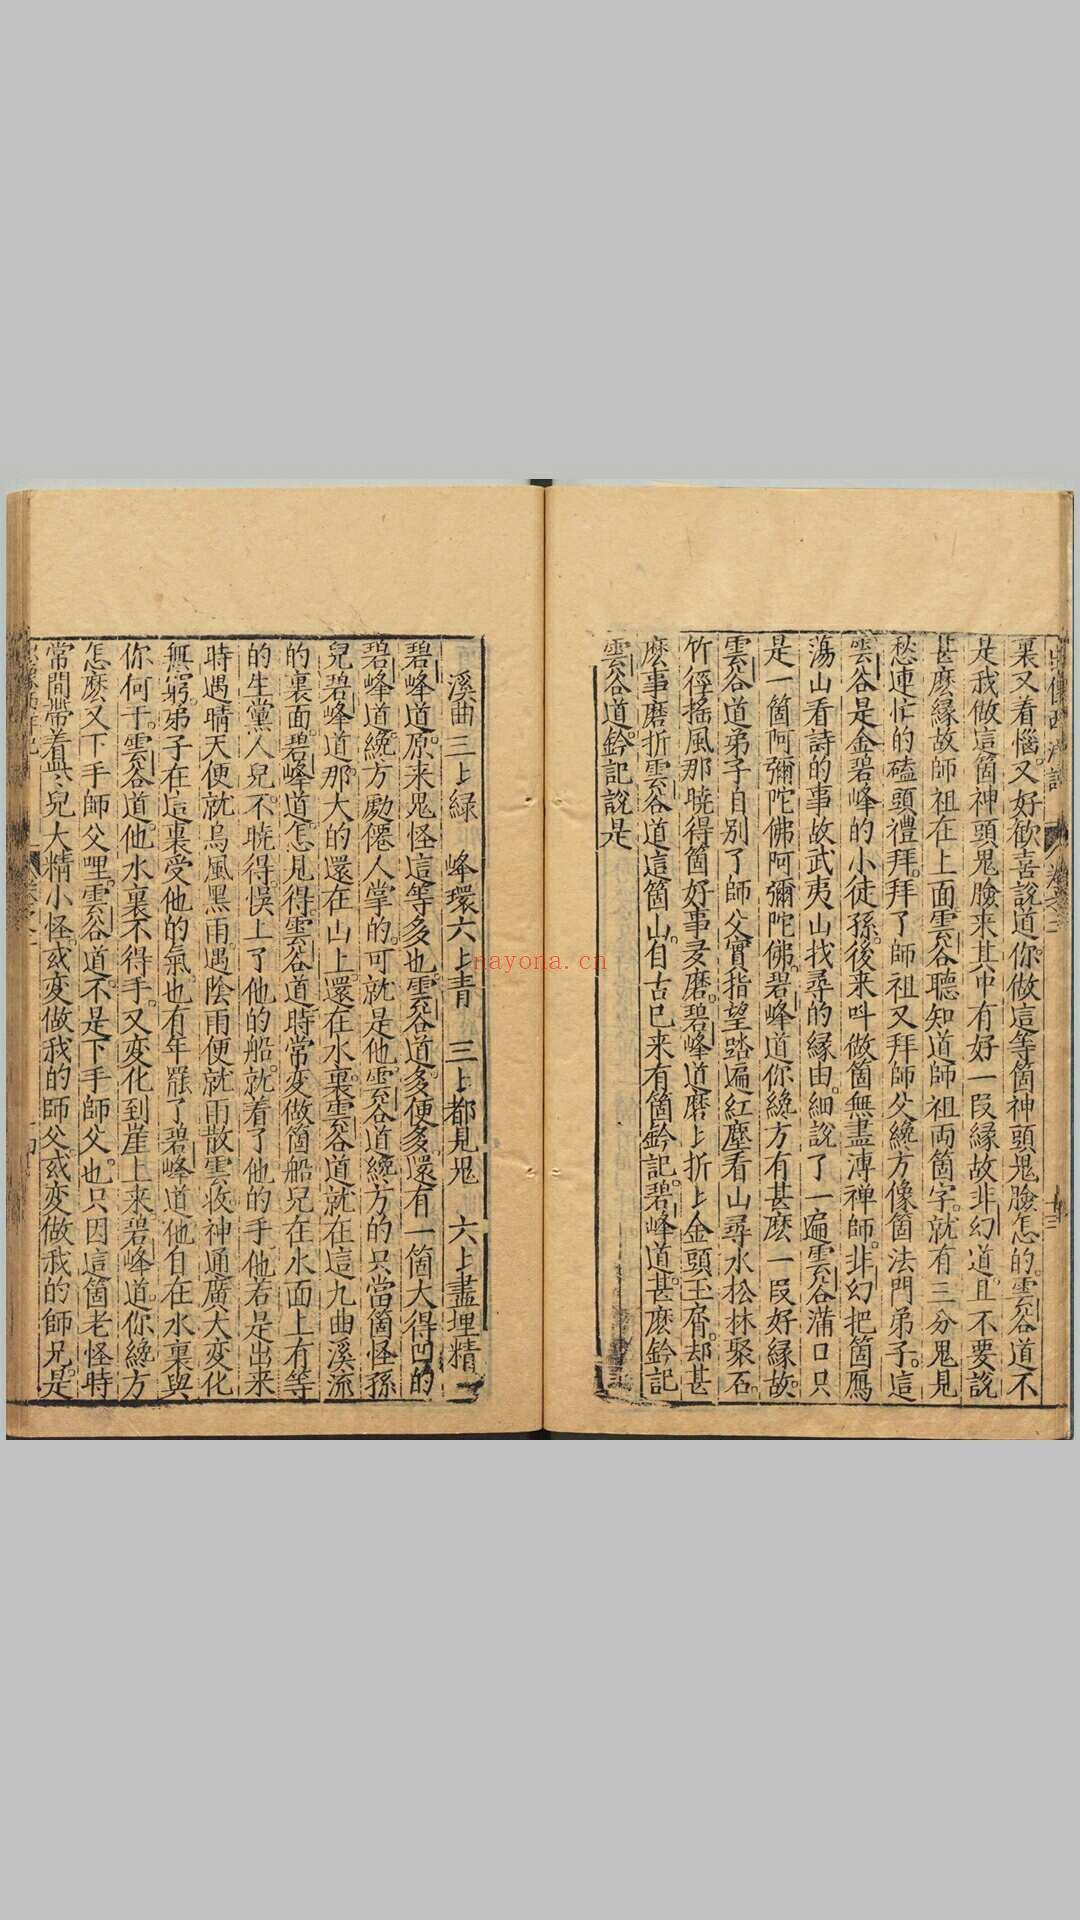 裏又看惱又好歡喜說道你做這等箇神頭鬼臉怎的雲谷道不
是我做這箇神頭鬼臉来其中有好一段緣故非幻道且不要說
甚麼緣故師祖在上面雲谷聽知道師祖両箇字就有三分鬼見
愁連忙的磕頭禮拜拜了師祖又拜師父纔方像箇法門弟子這
雲谷是金碧峰的小徒孫後来呌做箇無盡溥禅師非幻把箇鴈
蕩山看詩的事故武夷山找尋的緣由細說了一遍雲谷滿口只
是一箇阿彌陀佛阿彌陀佛碧峰道你纔方有甚麽一段好緣故
雲谷道弟子自别了師父實指望踏遍紅塵看山尋水松林聚石
竹徑揺風那曉得箇好事㝵磨碧峰道磨〻折〻金頭玉屑却甚
麽事磨折雲谷道這箇山自古已来有箇鈐記碧峰道甚麽鈐記
雲谷道鈐記說是
溪曲三〻緑 峰環六〻青 三〻都見鬼 六〻盡埋精
碧峰道原来鬼怪這等多也雲谷道多便多還有一箇大得凶的
碧峰道纔方勵僊人掌的可就是他雲谷道纔方的只當箇怪孫
兒碧峰道那大的還在山上還在水裏雲谷道就在這九曲溪流
的裏面碧峰道怎見得雲谷道時常变做箇船兒在水面上有等
的生黨人兒不曉得悞上了他的船就着了他的手他若是出来
時遇晴天便就烏風黑雨遇陰雨便就雨散雲收神通廣大变化
無窮弟子在這裏受他的氣也有年罷了碧峰道他自在水裏與
你何干雲谷道他水裏不得手又变化到崖上来碧峰道你纔方
怎麽又下手師父哩雲谷道不是下手師父也只因這箇老怪時
常間帶着些兒大精小怪或变做我的師父或变做我的師兄是
nayona.cn